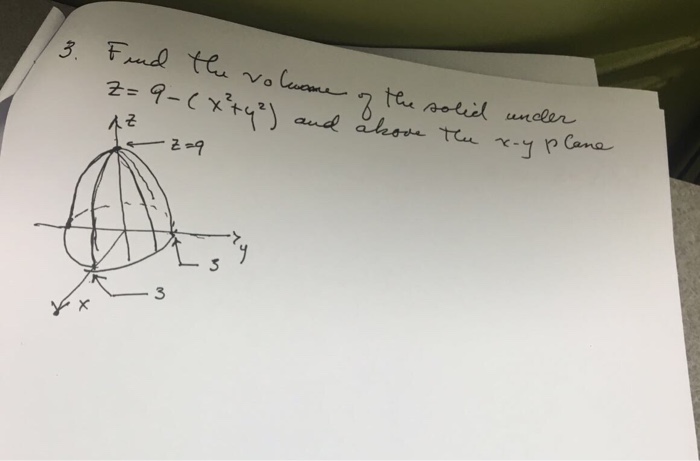 3. Find the volume of the solid under
z = 9 - (x²+y²) and above the x-y plane
z
z=9
y
3
3
x